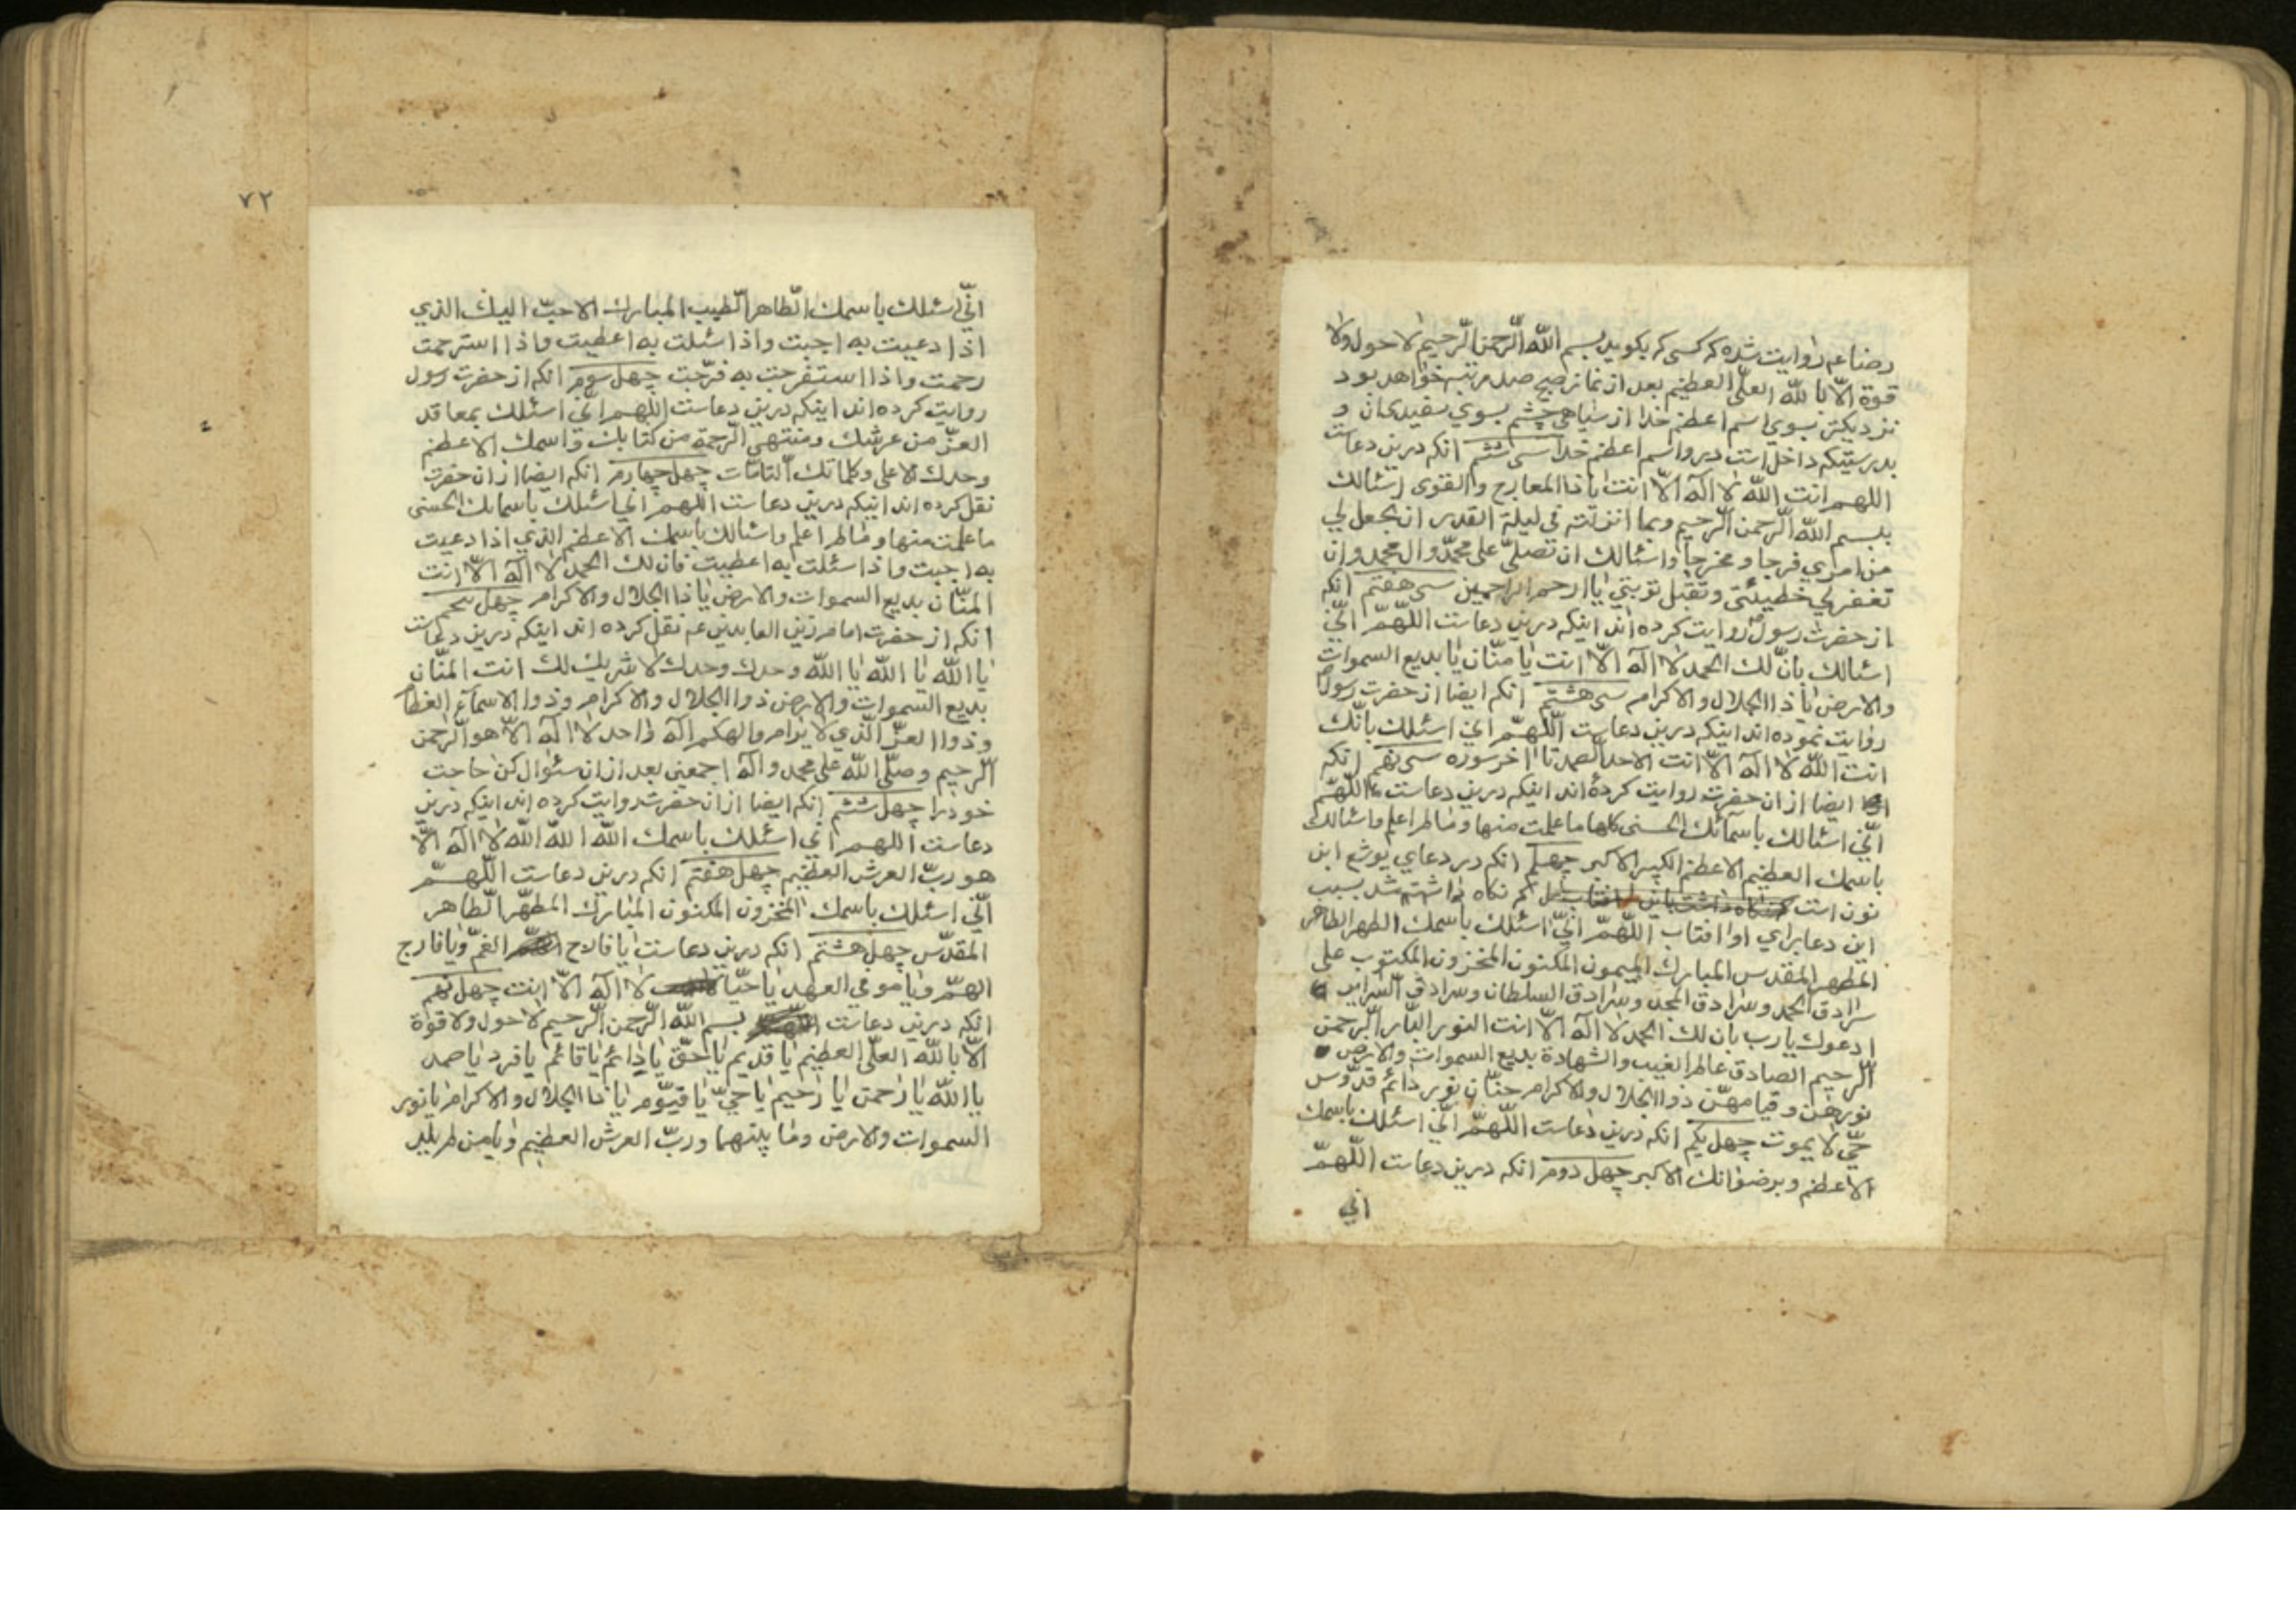 رضا عم روایت شده که کسی که بکوید بسم الله الرّحمن الرّحیم لا حول ولا
قوة الّا بالله العلّی العظیم بعد از نماز صبح صد مرتبه خواهد بود
نزدیکتر بسوي اسم اعظم خدا از سیاهی چشم بسوي سفیدی ان و
بدرستیکه داخل است در و اسم اعظم خدا سی ششم انکه درین دعاست
اللهم انت الله لا اله الّا انت یا ذا المعارج والقوی اسئالك
ببسم الله الرّحمن الرّحیم وبما انزلته فی لیلة القدر ان تجعل لي
من امري فرجا ومخرجا واسئالك ان تصلّی علی محمّد وال محمد وان
تغفر لي خطیئتی وتقبل توبتي یا ارحم الراحمین سی هفتم انکه
از حضرت رسول روایت کرده اند اینکه درین دعاست اللّهمّ انّي
اسئالك بانّ لك الحمد لا اله الّا انت یا منّان یا بدیع السموات
والارض یا ذا الجلال والاکرام سی هشتم انکه ایضا از حضرت رسول
روایت نموده اند اینکه درین دعاست اللّهمّ اني اسئلك بانّك
انت الله لا اله الّا انت الاحد الصمد تا اخر سوره سی نهم انکه
ایضا از ان حضرت روایت کرده اند اینکه درین دعاست اللّهمّ
انّي اسئالك باسمآئك الحسنی کلها ما علمت منها وما لم اعلم واسئالك
باسمك العظیم الاعظم الکبیر الاکبر چهلم انکه در دعاي یوشع ابن
نون است که نکاه داشته شد بسبب
این دعا براي او افتاب اللّهمّ انّي اسئلك باسمك الطهر الطاهر
المطهر المقدس المبارك المیمون المکنون المخزون المکتوب علی
سرادق الحمد وسرادق المجد وسرادق السلطان وسرادق السرایر
ادعوك یا رب بان لك الحمد لا اله الّا انت النور البّار الرحمن
الّرحیم الصادق عالم الغیب والشهادة بدیع السموات والارض
نورهن وقیامهنّ ذوا الجلال والاکرام حنّان نور دائم قدّوس
حيّ لا یموت چهل یکم انکه درین دعاست اللّهمّ انّي اسئلك باسمك
الاعظم وبرضوانك الاکبر چهل دوم انکه درین دعاست اللّهمّ
اني
٧٢
انّي اسئلك باسمك الطّاهر الطّیب المبارك الاحبّ الیك الذي
اذا دعیت به اجبت واذا سئلت به اعطیت واذا استرحمت
رحمت واذا استفرجت به فرّجت چهل سوم انکه از حضرت رسول
روایت کرده اند اینکه درین دعاست اللهم اني اسئلك بمعاقد
العزّ من عرشك ومنتهی الرّحمة من کتابك واسمك الاعظم
وجدك الاعلی وکلماتك التامّات چهل چهارم انکه ایضا از ان حضرت
نقل کرده اند اینکه درین دعاست اللهم اني اسئلك باسمائك الحسنی
ما علمت منها وما لم اعلم واسئالك باسمك الاعظم الذي اذا دعیت
به اجبت واذا سئلت به اعطیت فان لك الحمد لا اله الّا انت
المنّان بدیع السموات والارض یا ذا الجلال والاکرام چهل پنجم
انکه از حضرت امام زین العابدین عم نقل کرده اند اینکه درین دعاست
یا الله یا الله یا الله وحدك وحدك لا شریك لك انت المنّان
بدیع السموات والارض ذوا الجلال والاکرام وذوا الاسمآء العظام
وذوا العزّ الّذي لا یرام والهکم اله واحد لا اله الّا هو الرّحمن
الرّحیم وصلّی الله علی محمد واله اجمعین بعد از ان سئوال کن حاجت
خود را چهل ششم انکه ایضا از ان حضرت روایت کرده اند اینکه درین
دعاست اللهم اني اسئلك باسمك الله الله الله لا اله الّا
هو ربّ العرش العظیم چهل هفتم انکه درین دعاست اللّهمّ
انّي اسئلك باسمك المخزون المکنون المبارك المطهّر الطّاهر
المقدّس چهل هشتم انکه درین دعاست یا فارج الغمّ ویا فارج
الهمّ ویا موفي العهد یا حیّا لا اله الّا انت چهل نهم
انکه درین دعاست بسم الله الرّحمن الرّحیم لا حول ولا قوّة
الّا بالله العلّی العظیم یا قدیم یا حقّ یا دائم یا قائم یا فرد یا صمد
یا الله یا رحمن یا رحیم یا حيّ یا قیوّم یا ذا الجلال والاکرام یا نور
السموات والارض وما بینهما وربّ العرش العظیم ویا من لم یلد